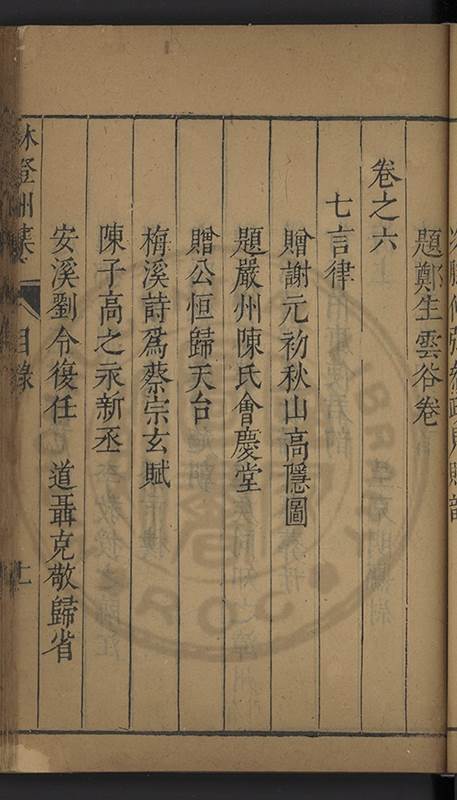 題鄭生雲谷卷
卷之六
七言律
贈謝元初秋山高隱圖
題嚴州陳氏會慶堂
贈公恒歸天台
梅溪詩爲蔡宗玄賦
陳子高之永新丞
安溪劉令復任 道聶克敬歸省
林登州集 目錄 七